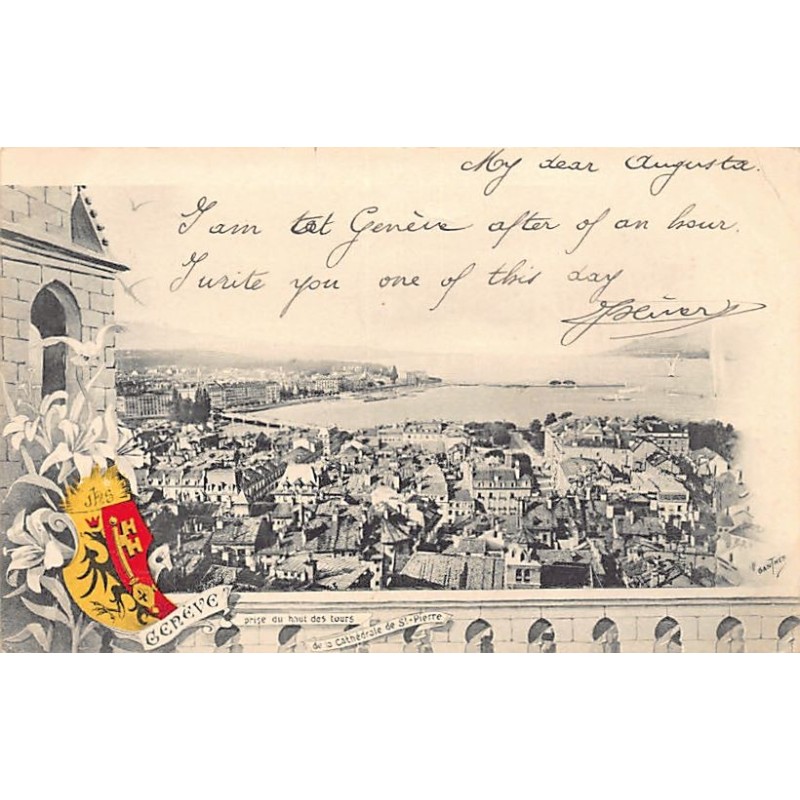 My dear Augusta.
I am tat Genève after of an hour.
I write you one of this day
JHS
GENÈVE
prise du haut des tours
de la Cathédrale de St-Pierre